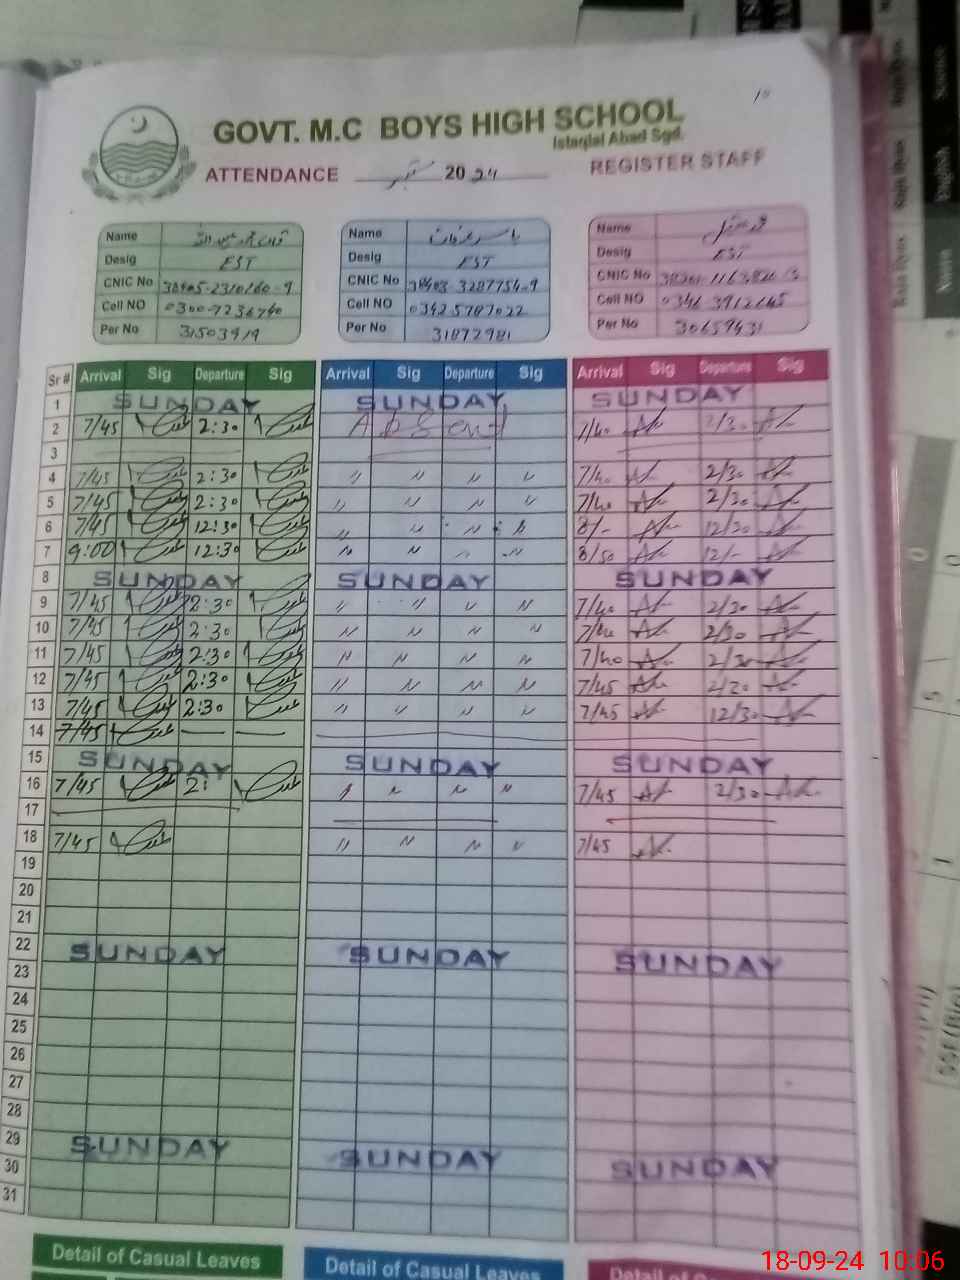 GOVT. M.C BOYS HIGH SCHOOL
Istaqlal Abad Sgd.
ATTENDANCE ستمبر 2024 REGISTER STAFF
Name
Desig EST
CNIC No 38405-2310160-9
Cell NO 0300-7236740
Per No 31503919
Name
Desig EST
CNIC No 38403-3287754-9
Cell NO 0342 5787022
Per No 31872981
Name
Desig EST
CNIC No
Cell NO 0346 3912645
Per No 30659431
Sr # Arrival Sig Departure Sig Arrival Sig Departure Sig Arrival Sig Departure Sig
1 SUNDAY SUNDAY SUNDAY
2 7/45 2:30 Absent 7/40 2/30
3
4 7/45 2:30 〃 〃 〃 〃 7/40 2/30
5 7/45 2:30 〃 〃 〃 〃 7/40 2/30
6 7/45 12:30 〃 〃 〃 〃 8/- 12/30
7 9:00 12:30 〃 〃 〃 〃 8/50 12/-
8 SUNDAY SUNDAY SUNDAY
9 7/45 2:30 〃 〃 〃 〃 7/40 2/30
10 7/45 2:30 〃 〃 〃 〃 7/40 2/30
11 7/45 2:30 〃 〃 〃 〃 7/40 2/30
12 7/45 2:30 〃 〃 〃 〃 7/45 2/30
13 7/45 2:30 〃 〃 〃 〃 7/45 12/30
14 7/45 — —
15 SUNDAY SUNDAY SUNDAY
16 7/45 2: 〃 〃 〃 〃 7/45 2/30
17
18 7/45 〃 〃 〃 〃 7/45
19
20
21
22 SUNDAY SUNDAY SUNDAY
23
24
25
26
27
28
29 SUNDAY SUNDAY SUNDAY
30
31
Detail of Casual Leaves Detail of Casual Leaves
18-09-24 10:06